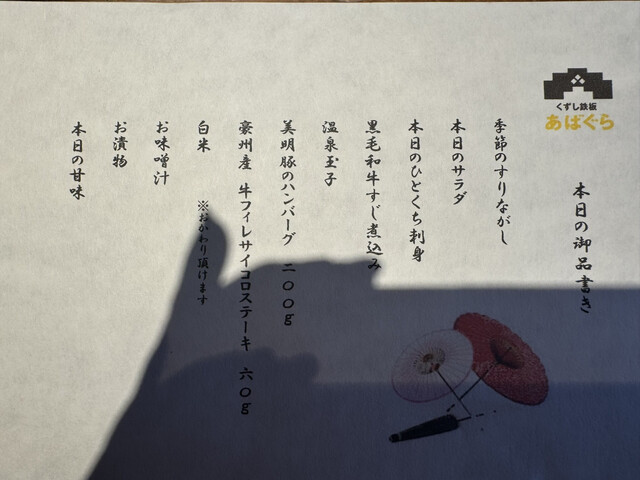 くずし鉄板
あばぐら
本日の御品書き
季節のすりながし
本日のサラダ
本日のひとくち刺身
黒毛和牛すじ煮込み
温泉玉子
美明豚のハンバーグ 二〇〇g
豪州産 牛フィレサイコロステーキ 六〇g
白米 ※おかわり頂けます
お味噌汁
お漬物
本日の甘味